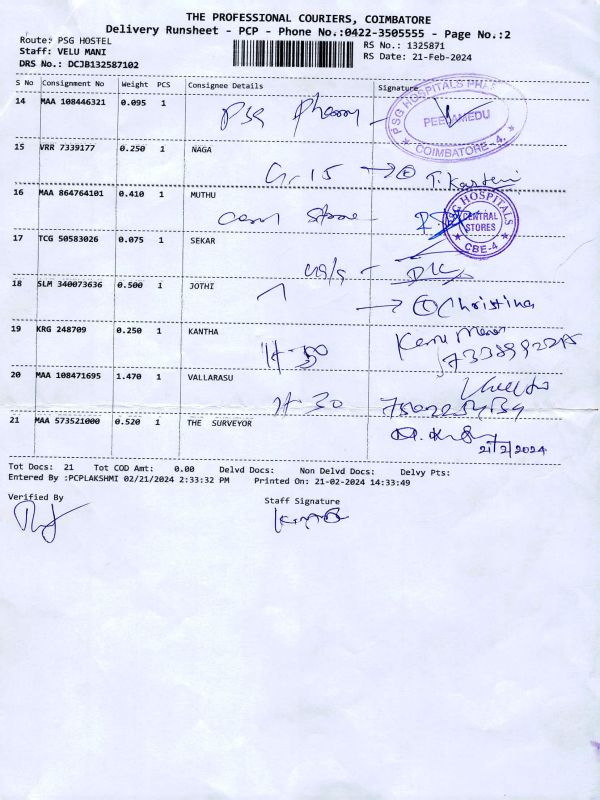 THE PROFESSIONAL COURIERS, COIMBATORE
Delivery Runsheet - PCP - Phone No.:0422-3505555 - Page No.:2
Route: PSG HOSTEL
RS No.: 1325871
Staff: VELU MANI
RS Date: 21-Feb-2024
DRS No.: DCJB132587102
S No Consignment No Weight PCS Consignee Details Signature
14 MAA 108446321 0.095 1
PSG Pharm
PSG HOSPITALS PHAR
PEELAMEDU
COIMBATORE-4.
15 VRR 7339177 0.250 1 NAGA
16 MAA 864764101 0.410 1 MUTHU
PSG HOSPITALS
CENTRAL
STORES
CBE-4
17 TCG 50583026 0.075 1 SEKAR
18 SLM 340073636 0.500 1 JOTHI
Christina
19 KRG 248709 0.250 1 KANTHA
H-30
20 MAA 108471695 1.470 1 VALLARASU
H-30
21 MAA 573521000 0.520 1 THE SURVEYOR
21/2/2024
Tot Docs: 21 Tot COD Amt: 0.00 Delvd Docs: Non Delvd Docs: Delvy Pts:
Entered By :PCPLAKSHMI 02/21/2024 2:33:32 PM Printed On: 21-02-2024 14:33:49
Verified By Staff Signature